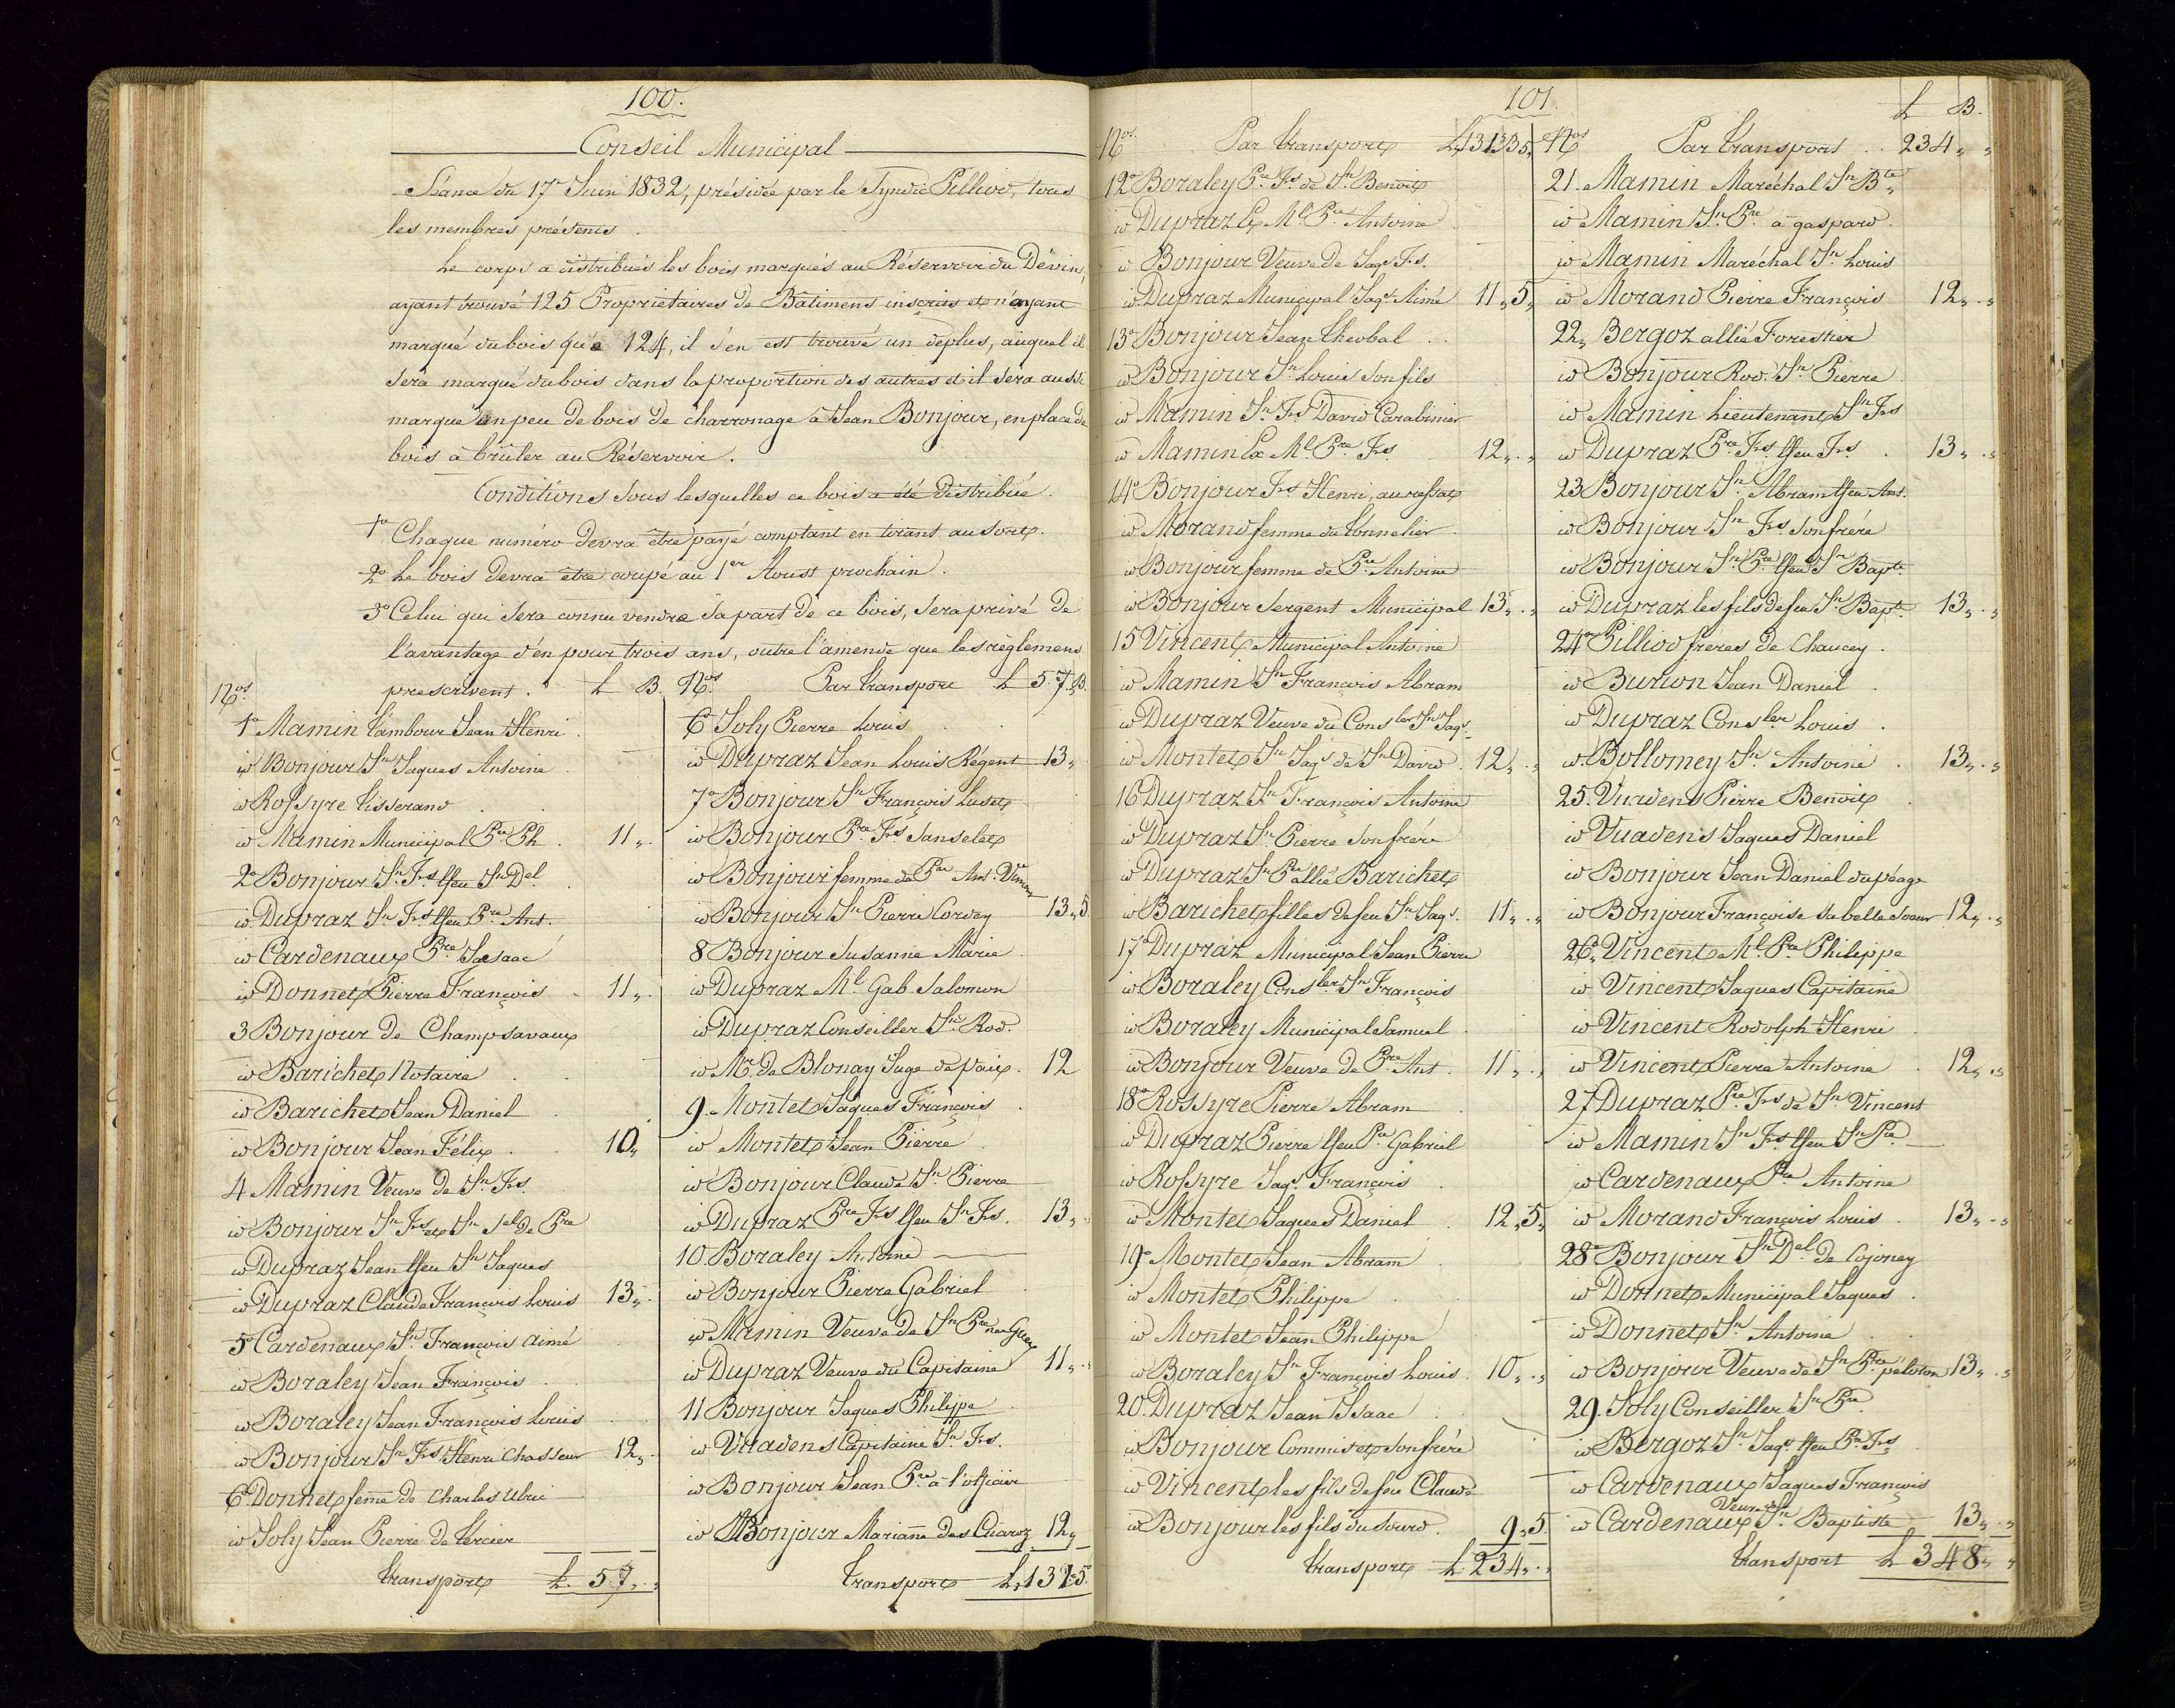 100.
Conseil Municipal
Séance du 17e Juin 1832, présidée par le Syndic Pilliod, tous
les membres présents.
Le corps a distribués les bois marqués au Réservoir du Dévin,
ayant trouvé 125 Propriétaires de Bâtimens inscrits et n'ayant
marqué du bois qu'à 124, il s'en est trouvé un deplus, auquel il
sera marqué du bois dans la proportion des autres et il sera aussi
marqué un peu de bois de charronage à Jean Bonjour, en place de
bois à brûler au Réservoir.
Conditions sous lesquelles ce bois a été distribué.
1o Chaque numéro devra être payé comptant en tirant au sort.
2o Le bois devra être coupé au 1er Aoust prochain.
3o Celui qui sera connu vendre sa part de ce bois, sera privé de
l'avantage d'en pour trois ans, outre l'amende que les règlemens
prescrivent.
Nos. L B.
1o Mamin tambour Jean Henri
id Bonjour Jn Jaques Antoine
id Rossyre tisserand
id Mamin Municipal Pre Ph. 11,,
2o Bonjour Jn Frs ffeu Jn Del
id Dupraz Jn Frs ffeu Pre Ant.
id Cardenaux Pre Isaac
id Donnet Pierre François 11,,
3 Bonjour de Champsavaux
id Barichet Notaire
id Barichet Jean Daniel
id Bonjour Jean Félix 10,,
4 Mamin Veuve de Jn Frs
id Bonjour Jn Frs et Jn Jel de Pre
id Dupraz Jean ffeu Jn Jaques
id Dupraz Claude François Louis 13,,
5o Cardenaux Jn François Aimé
id Boraley Jean François
id Boraley Jean François Louis
id Bonjour Jn Frs Henri Chasseur 12,,
6o Donnet feme de Charles Ulric
id Joly Jean Pierre de Tercier
transport L. 57,,
Nos. Par transport L 57. B.
6o Joly Pierre Louis
id Dupraz Jean Louis Régent 13,,
7o Bonjour Jn François Luset
id Bonjour Pre Frs Sanselet
id Bonjour femme de Pre Ant.
id Bonjour Jn Pierre Corsey 13,,5
8 Bonjour Susanne Marie
id Dupraz Ml Gab. Salomon
id Dupraz Conseiller Jn Rod.
id Mr de Blonay Juge de paix. 12
9. Montet Jaques François
id Montet Jean Pierre
id Bonjour Claude Jn Pierre
id Dupraz Pre Frs ffeu Jn Frs. 13,,
10 Boraley Antoine
id Bonjour Pierre Gabriel
id Mamin Veuve de Jn Pre née Guex
id Dupraz Veuve du Capitaine 11,,
11 Bonjour Jaques Philippe
id Vuadens Capitaine Jn Frs.
id Bonjour Jean Pre à l'officier
id Bonjour Marianne des Cuaroz 12,,
transport L. 131,,5.
101.
Nos. Par transport L. 131 B 5,,
12o Boraley Pre Frs de Jn Benoit
id Dupraz Ex Ml Pre Antoine
id Bonjour Veuve de Jaqs Frs.
id Dupraz Municipal Jaqs Aimé 11,,5,,
13o Bonjour Jean Théobal
id Bonjour Jn Louis son fils
id Mamin Jn Frs David Carabinier
id Mamin Ex Ml Pre Frs 12,,
14o Bonjour Frs Henri, au ressat
id Morand femme du tonnelier
id Bonjour femme de Pre Antoine
id Bonjour Sergent Municipal 13,,
15 Vincent Municipal Antoine
id Mamin Jn François Abram
id Dupraz Veuve du Consler Jn Jaqs.
id Montet Jn Jaqs de Jn David 12,,
16 Dupraz Jn François Antoine
id Dupraz Jn Pierre son frère
id Dupraz Jn Pre allié Barichet
id Barichet filles de feu Jn Jaqs. 11,,
17o Dupraz Municipal Jean Pierre
id Boraley Consler Jn François
id Boraley Municipal Samuel
id Bonjour Veuve de Pre Ant. 11,,
18o Rossyre Pierre Abram
id Dupraz Pierre ffeu Pre Gabriel
id Rossyre Jaqs François
id Montet Jaques Daniel 12,,5,,
19o Montet Jean Abram
id Montet Philippe
id Montet Jean Philippe
id Boraley Jn François Louis 10,,
20. Dupraz Jean Isaac
id Bonjour Commis et son frère
id Vincent les fils de feu Claude
id Bonjour les fils du sourd 9,,5.
transport L. 234,,
L B.
Nos Par transport 234,,
21. Mamin Maréchal Jn Bte
id Mamin Jn Pre à gaspard
id Mamin Maréchal Jn Louis
id Morand Pierre François 12,,
22,, Bergoz allié Forestier
id Bonjour Rod. Jn Pierre
id Mamin Lieutenant Jn Frs
id Dupraz Pre Frs ffeu Frs 13,,
23 Bonjour Jn Abram ffeu Ant.
id Bonjour Jn Frs son frère
id Bonjour Jn Pre ffeu Jn Bapt.
id Dupraz les fils de feu Jn Bapt. 13,,
24o Pilliod frères de Chaucey
id Burion Jean Daniel
id Dupraz Consler Louis
id Bollomey Jn Antoine 13,,
25. Vuadens Pierre Benoit
id Vuadens Jaques Daniel
id Bonjour Jean Daniel du péage
id Bonjour Françoise sa belle soeur 12,,
26,, Vincent Ml Pre Philippe
id Vincent Jaques Capitaine
id Vincent Rodolph Henri
id Vincent Pierre Antoine 12,,
27 Dupraz Pre Frs de Jn Vincent
id Mamin Jn Frs ffeu Jn Pre
id Cardenaux Pre Antoine
id Morand François Louis 13,,
28o Bonjour Jn Del de Cojoney
id Donnet Municipal Jaques
id Donnet Jn Antoine
id Bonjour Veuve de Jn Pre péloton 13,,
29. Joly Conseiller Jn Pre
id Bergoz Jn Jaqs ffeu Pre Frs
id Cardenaux Jaques François
id Cardenaux Veuve de Jn Baptiste 13,,
transport L 348,,